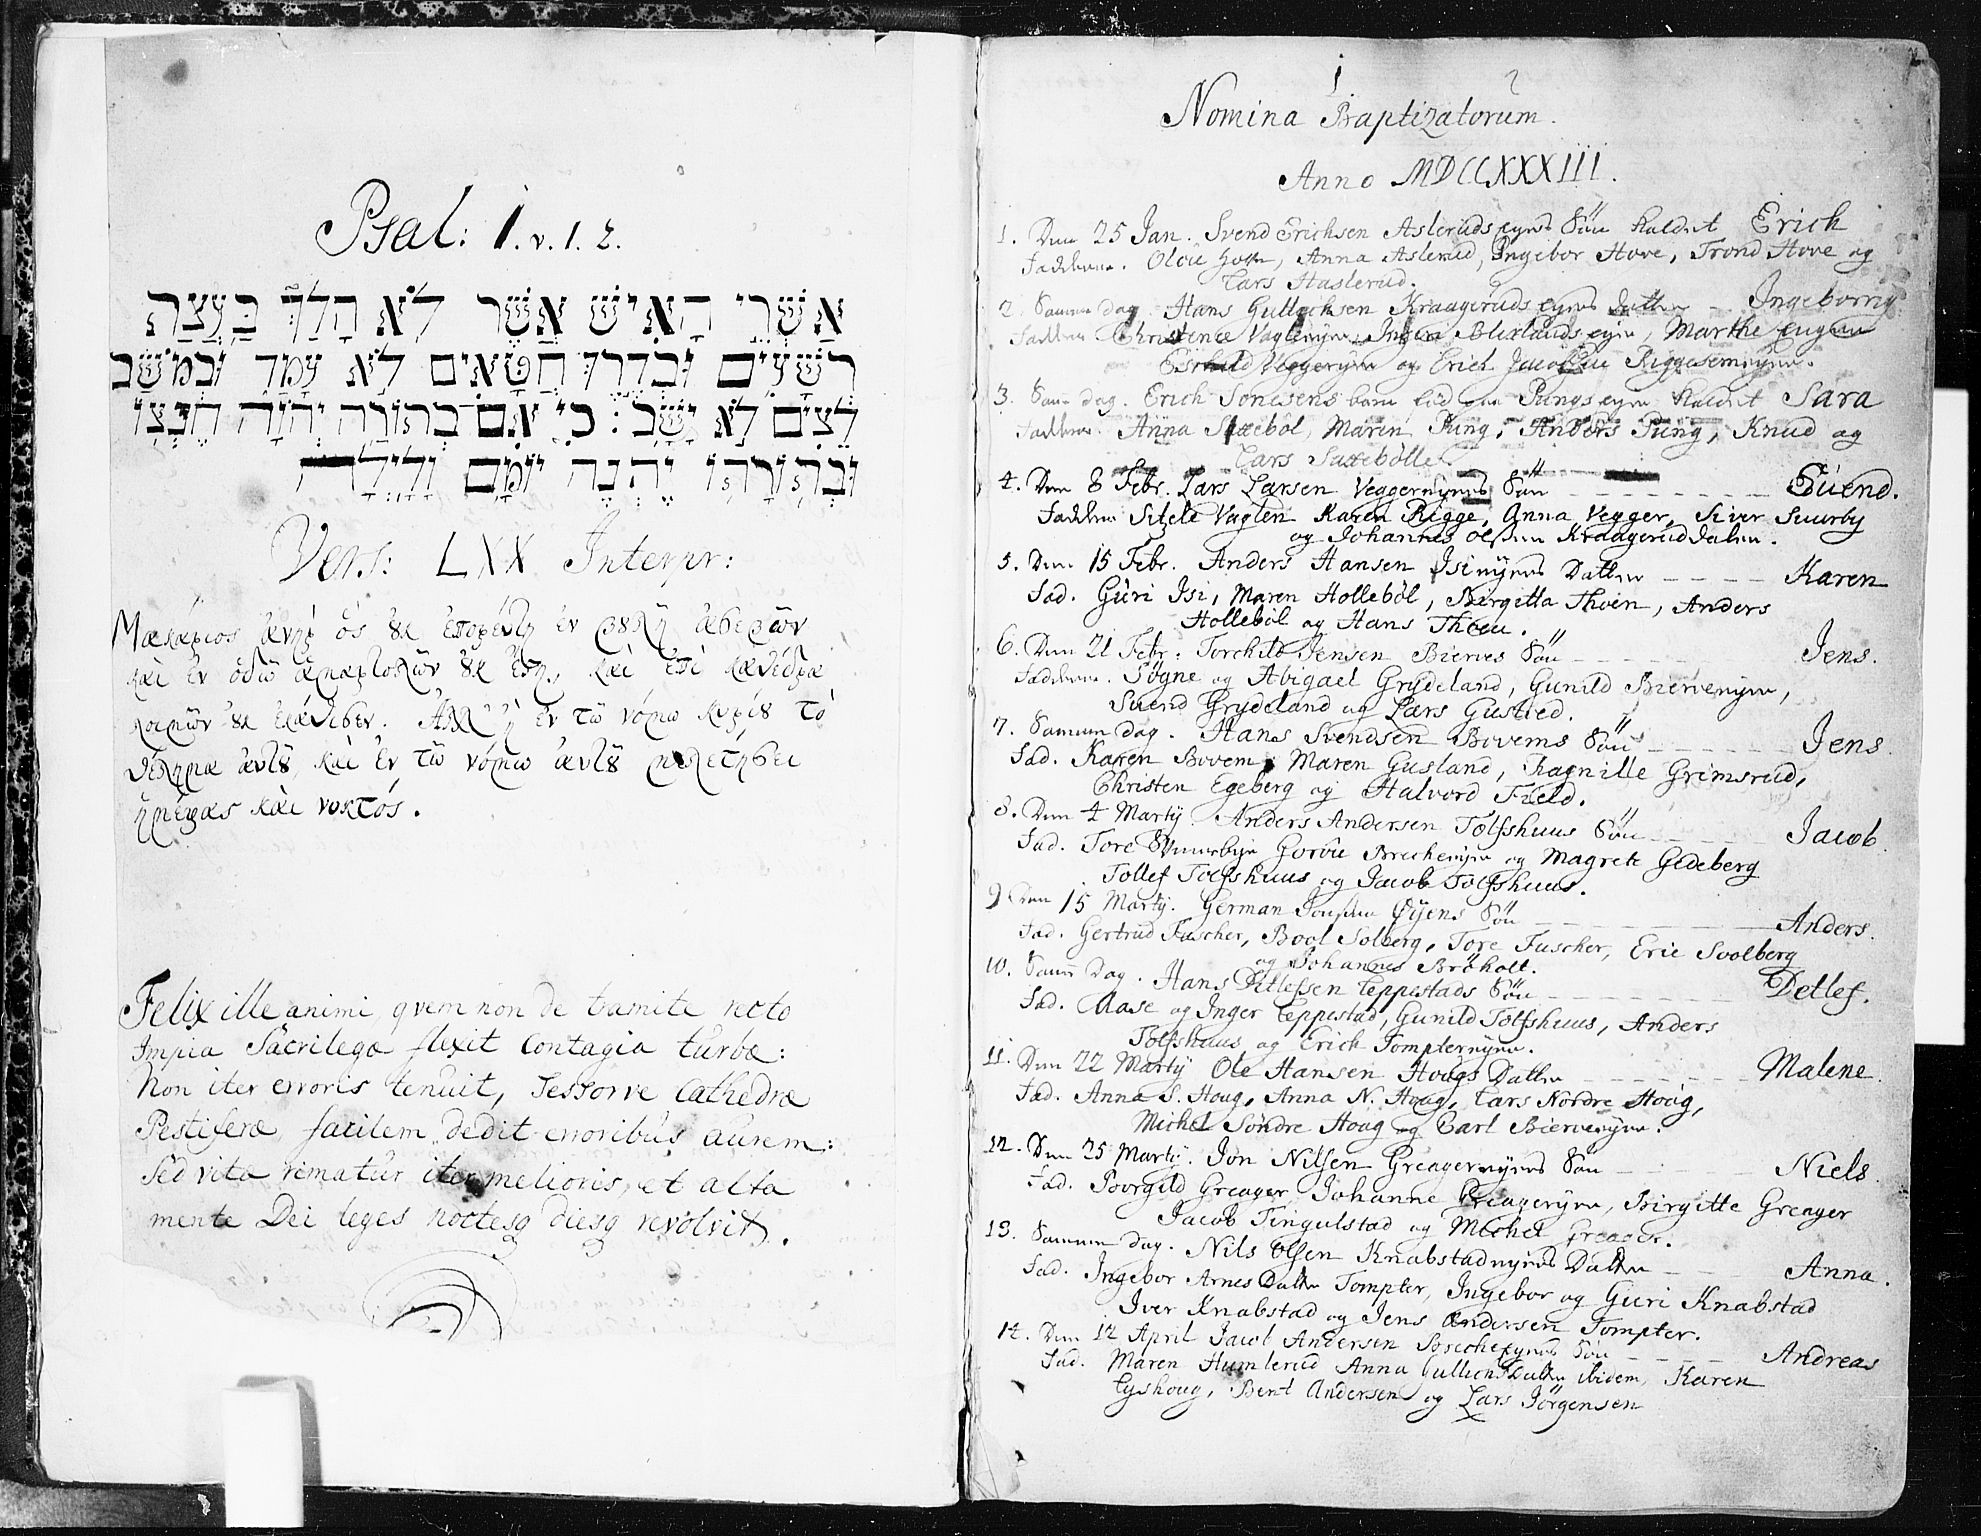 Psal: 1. v. 1. 2.
אַשְׁרֵי הָאִישׁ אֲשֶׁר לֹא הָלַךְ בַּעֲצַת
רְשָׁעִים וּבְדֶרֶךְ חַטָּאִים לֹא עָמָד וּבְמֹשַׁב
לֵצִים לֹא יָשָׁב׃ כִּי אִם־בְּתוֹרַת יְהוָה חֶפְצוֹ
וּבְתוֹרָתוֹ יֶהְגֶּה יוֹמָם וָלָיְלָה
Vers: LXX Interpr:
Μακάριος ἀνήρ ὁς ȣκ ἐπορέυθη ἐν βȣλῆ ἀσεβῶν
καὶ ἐν ὁδῶ ἁμαρτολῶν ȣκ ἔστη, καὶ ἐπὶ καθέδρα
λοιμῶν ȣκ ἐκάθισεν. Ἀλλ' ἢ ἐν τῶ νόμω κυρίȣ τὸ
θέλημα ἀυτȣ͂, καὶ ἐν τῶ νόμω ἀυτȣ͂ μελετήσει
ἡμέρας καὶ νυκτός.
Felix ille animi, qvem non de tramite recto
Impia Sacrilegæ flexit contagia turbæ:
Non iter erroris tenuit, sessorve cathedræ
Pestiferæ, facilem dedit erroribus aurem:
Sed vita rimatur iter melioris, et alta
mente Dei leges noctesq diesq revolvit.
1
Nomina Baptizatorum.
Anno MDCCXXXIII.
1. Den 25 Jan. Svend Erichsen Asleruds eyes Sön kaldet Erich
Faddere. Olou, Anna Aslerud, Ingebor Hove, Trond Hove og
Lars Haslerud.
2. Samme dag. Hans Gullichsen Kraageruds eyes datter Ingeborrig
Faddere Christence Vaglen, Marthe
Veggereyen og Erich Jacobsen Riggesem.
3. Sam dag. Erich Tonesens barn Pungs eyen kaldet Sara
Faddere. Anna Saxebôl, Maren Pung, Anders Pung, Knud og
Lars Saxebölle.
4. Den 8 Febr. Lars Larsen Veggereyens Sön Suend.
Faddere Sitele Vaglen Karen Rigge, Anna Vegger, Siver Suurby
og Johannes Olsen Kraagerud dalen.
5. Den 15 Febr. Anders Hansen Isieyens Datter Karen
Fad. Guri Isi, Maren Holleböl, Birgitta Thoen, Anders
Holleböl og Hans Thoen.
6. Den 21 Febr: Torchild Jensen Bierves Sön Jens.
Faddere. Sögne og Abigael Grydeland, Gunild Bierveeyen,
Suend Grydeland og Lars Gusted.
7. Samme dag. Hans Svendsen Bovems Sön Jens
Fad. Karen Bovem, Maren Gusland, Ragnille Grimsrud,
Christen Egeberg og Halvord Field.
8. Den 4 Martÿ. Anders Andersen Tolfshuus Sön Jacob.
Fad. Tore Smurbye Goroe Brecheeyen og Magrete Gedeberg
Tollef Tolfshuus og Jacob Tolfshuus.
9 Den 15 Martÿ. German Jonsen Öÿens Sön Anders.
Fad. Gertrud Fuscher, Bool Solberg, Tore Fuscher, Eric Svolberg
og Johannes Bröholt.
10. Sam Dag. Hans Ditlefsen Teppestads Sön Detlef.
Fad. Aase og Inger Teppestad, Gunild Tolfshuus, Anders
Tolfshuus og Erich Tomptereyen.
11. Den 22 Martÿ Ole Hansen Hougs Datter Malene
Fad. Anna S. Houg, Anna N. Houg, Lars Nordre Houg,
Michel Söndre Houg og Carl Bierveeyen.
12. Den 25 Martÿ. Jon Nilsen Greagereyens Sön Niels.
Fad. Povrgild Greager, Johanne Greagereyen, Birgitte Greager
Jacob Tingulstad og Michel Greager.
13. Samme dag. Nils Olsen Knabstadeyens Datter Anna.
Fad. Ingebor Arnes Datter Tompter, Ingebor og Guri Knabstad
Iver Knabstad og Jens Andersen Tompter.
14. Den 12 April Jacob Andersen Brecheeyens Sön Andreas
Fad. Maren Humlerud Anna Gullichsdatter ibidem, Karen
Lyshoug, Bent Andersen og Lars Jörgensen